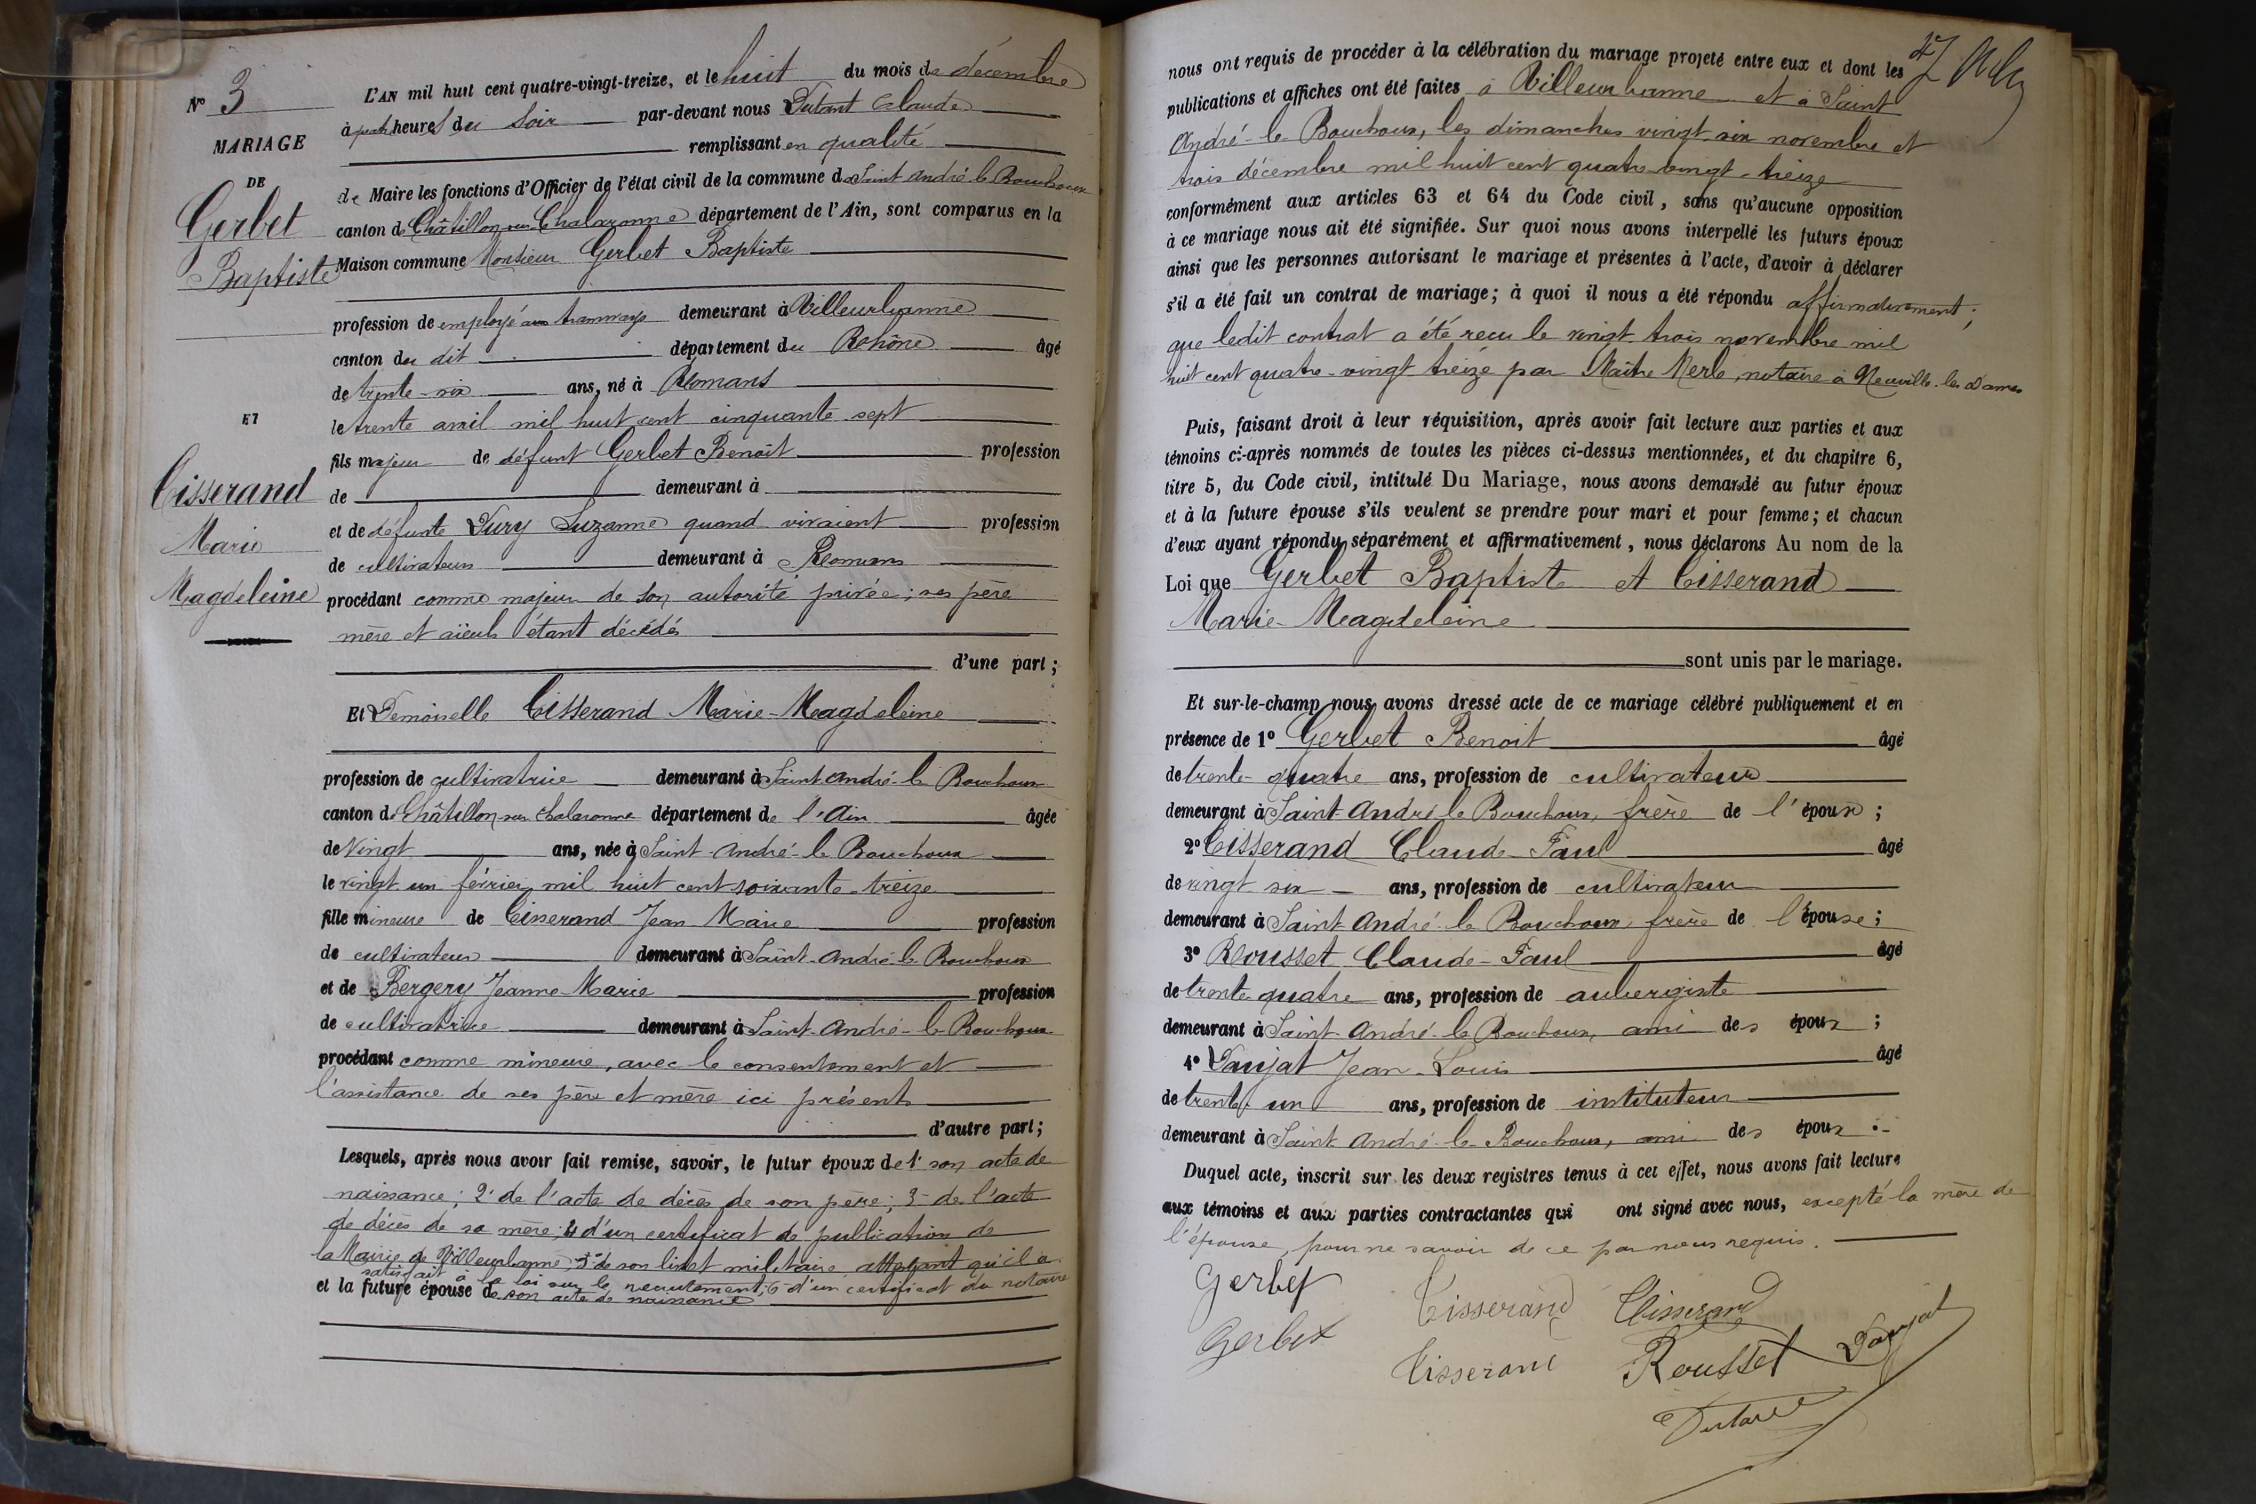 N° 3
MARIAGE
DE
Gerbet
Baptiste
ET
Tisserand
Marie
Magdeleine
L'AN mil huit cent quatre-vingt-treize, et le huit du mois de décembre
à heures du Soir par-devant nous Dutant Claude
remplissant en qualité
de Maire les fonctions d'Officier de l'état civil de la commune de Saint André le Bouchoux
canton de Châtillon-sur-Chalaronne département de l'Ain, sont comparus en la
Maison commune Monsieur Gerbet Baptiste
profession de employé aux tramways demeurant à Villeurbanne
canton du dit département du Rhône âgé
de trente-six ans, né à Romans
le trente avril mil huit cent cinquante-sept
fils majeur de défunt Gerbet Benoît profession
de demeurant à
et de défunte Dury Suzanne quand vivaient profession
de cultivateurs demeurant à Romans
procédant comme majeur de son autorité privée; ses père
mère et aïeuls étant décédés
d'une part;
Et Demoiselle Tisserand Marie-Magdeleine
profession de cultivatrice demeurant à Saint-André-le Bouchoux
canton de Châtillon-sur-Chalaronne département de l'Ain âgée
de Vingt ans, née à Saint-André-le Bouchoux
le vingt un février mil huit cent soixante-treize
fille mineure de Tisserand Jean Marie profession
de cultivateur demeurant à Saint-André-le Bouchoux
et de Bergery Jeanne-Marie profession
de cultivatrice demeurant à Saint-André-le-Bouchoux
procédant comme mineure, avec le consentement et
l'assistance de ses père et mère ici présents
d'autre part;
Lesquels, après nous avoir fait remise, savoir, le futur époux de 1° son acte de
naissance; 2° de l'acte de décès de son père; 3° de l'acte
de décès de sa mère; 4 d'un certificat de publication de
la Mairie de Villeurbanne; 5° de son livret militaire attestant qu'il a
satisfait à la loi sur le recrutement; 6 d'un certificat du notaire
et la future épouse de son acte de naissance
nous ont requis de procéder à la célébration du mariage projeté entre eux et dont les
publications et affiches ont été faites à Villeurbanne et à Saint
André-le Bouchoux, les dimanches vingt-six novembre et
trois décembre mil huit cent quatre-vingt-treize
conformément aux articles 63 et 64 du Code civil, sans qu'aucune opposition
à ce mariage nous ait été signifiée. Sur quoi nous avons interpellé les futurs époux
ainsi que les personnes autorisant le mariage et présentes à l'acte, d'avoir à déclarer
s'il a été fait un contrat de mariage; à quoi il nous a été répondu affirmativement;
que ledit contrat a été reçu le vingt-trois novembre mil
huit cent quatre-vingt treize par Maître Merle, notaire à Neuville-les-Dames
Puis, faisant droit à leur réquisition, après avoir fait lecture aux parties et aux
témoins ci-après nommés de toutes les pièces ci-dessus mentionnées, et du chapitre 6,
titre 5, du Code civil, intitulé Du Mariage, nous avons demandé au futur époux
et à la future épouse s'ils veulent se prendre pour mari et pour femme; et chacun
d'eux ayant répondu séparément et affirmativement, nous déclarons Au nom de la
Loi que Gerbet Baptiste et Tisserand
Marie-Magdeleine
sont unis par le mariage.
Et sur-le-champ nous avons dressé acte de ce mariage célébré publiquement et en
présence de 1° Gerbet Benoit âgé
de trente-quatre ans, profession de cultivateur
demeurant à Saint-André le Bouchoux, frère de l'époux;
2° Tisserand Claude-Paul âgé
de vingt six ans, profession de cultivateur
demeurant à Saint-André-le Bouchoux frère de l'épouse;
3° Rousset Claude-Paul âgé
de trente quatre ans, profession de aubergiste
demeurant à Saint-André-le Bouchoux, ami des époux;
4° Paujat Jean-Louis âgé
de trente-un ans, profession de instituteur
demeurant à Saint-André-le-Bouchoux, ami des époux :-
Duquel acte, inscrit sur les deux registres tenus à cet effet, nous avons fait lecture
aux témoins et aux parties contractantes qui ont signé avec nous, excepté la mère de
l'épouse, pour ne savoir de ce par nous requis.
Gerbet
Tisserand
Tisserand
Gerbet
Tisserand
Rousset
Paujat